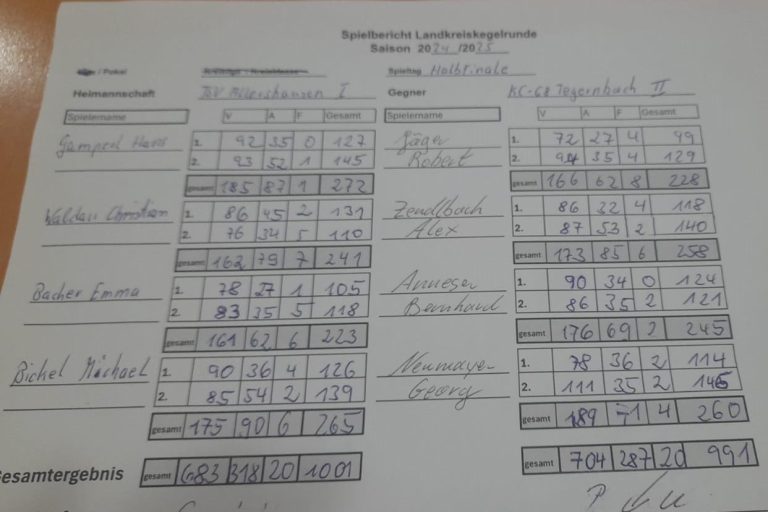 Spielbericht Landkreiskegelrunde
Saison 2024/2025
/ Pokal Spieltag Halbfinale
Heimannschaft TSV Allershausen I Gegner KC-68 Tegernbach II
Spielername V A F Gesamt Spielername V A F Gesamt
Gamperl Hans 1. 92 35 0 127 Jäger 1. 72 27 4 99
2. 93 52 1 145 Robert 2. 94 35 4 129
gesamt 185 87 1 272 gesamt 166 62 8 228
Waldau Christian 1. 86 45 2 131 Zendlbach 1. 86 32 4 118
2. 76 34 5 110 Alex 2. 87 53 2 140
gesamt 162 79 7 241 gesamt 173 85 6 258
Bacher Emma 1. 78 27 1 105 Anneser 1. 90 34 0 124
2. 83 35 5 118 Bernhard 2. 86 35 2 121
gesamt 161 62 6 223 gesamt 176 69 2 245
Bichel Michael 1. 90 36 4 126 Neumayer 1. 78 36 2 114
2. 85 54 2 139 Georg 2. 111 35 2 146
gesamt 175 90 6 265 gesamt 189 71 4 260
Gesamtergebnis gesamt 683 318 20 1001 gesamt 704 287 20 991